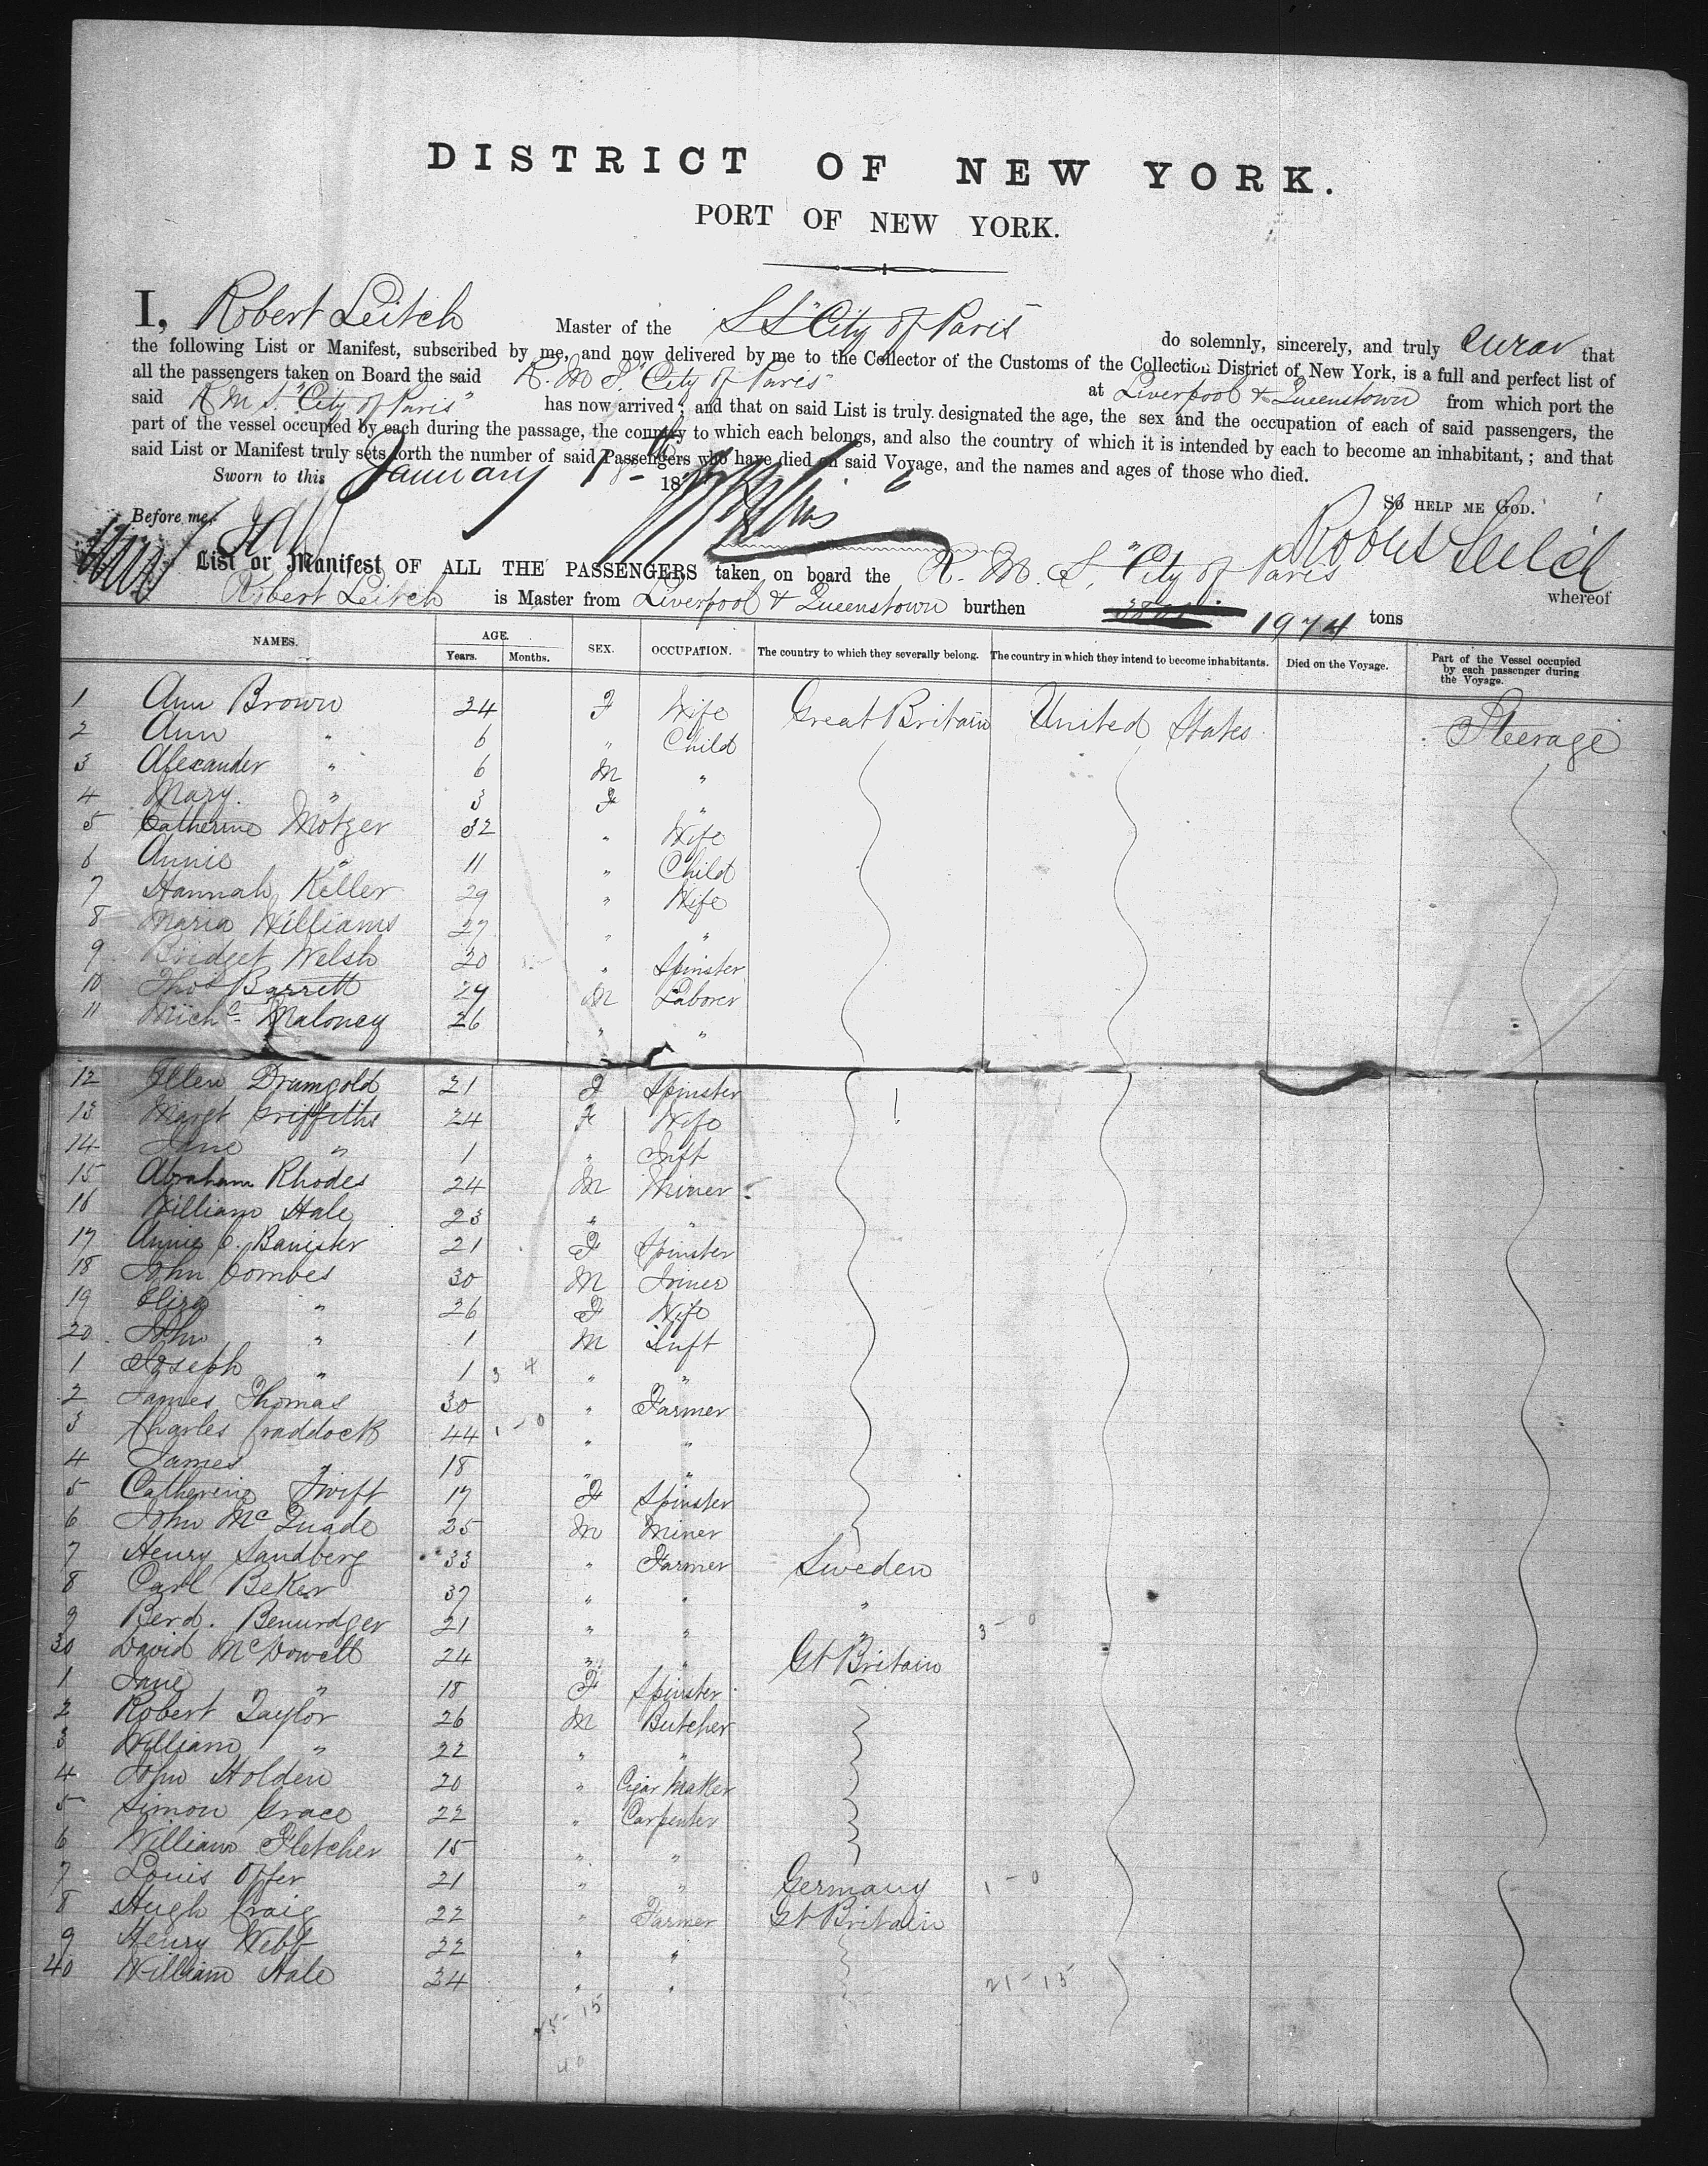 DISTRICT OF NEW YORK.
PORT OF NEW YORK.
I, Robert Leitch Master of the SS "City of Paris" do solemnly, sincerely, and truly swear that
the following List or Manifest, subscribed by me, and now delivered by me to the Collector of the Customs of the Collection District of New York, is a full and perfect list of
all the passengers taken on Board the said R. M. S. "City of Paris" at Liverpool & Queenstown from which port the
said R M S. "City of Paris" has now arrived; and that on said List is truly designated the age, the sex and the occupation of each of said passengers, the
part of the vessel occupied by each during the passage, the country to which each belongs, and also the country of which it is intended by each to become an inhabitant,; and that
said List or Manifest truly sets forth the number of said Passengers who have died on said Voyage, and the names and ages of those who died.
Sworn to this January 18
SO HELP ME GOD.
Before me,
Robert Leitch
List or Manifest OF ALL THE PASSENGERS taken on board the R. M. S. "City of Paris whereof
Robert Leitch is Master from Liverpool & Queenstown burthen 1974 tons
NAMES. AGE. Years. Months. SEX. OCCUPATION. The country to which they severally belong. The country in which they intend to become inhabitants. Died on the Voyage. Part of the Vessel occupied by each passenger during the Voyage.
1 Ann Brown 34 F Wife Great Britain United States Steerage
2 Ann " 6 " Child
3 Alexander " 6 M "
4 Mary " 3 F "
5 Catherine Motzer 32 " Wife
6 Annie " 11 " Child
7 Hannah Keller 29 " Wife
8 Maria Williams 27 " "
9 Bridget Welsh 20 " Spinster
10 Thos Barrett 24 M Laborer
11 Michl Maloney 26 " "
12 Ellen Drumgold 21 F Spinster
13 Margt Griffiths 24 F Wife
14 Jane " 1 " Inft
15 Abraham Rhodes 24 M Miner
16 William Hale 23 " "
17 Annie C. Banister 21 F Spinster
18 John Combes 30 M Joiner
19 Eliza " 26 F Wife
20 John " 1 M Inft
1 Joseph " 1 3 4 " "
2 James Thomas 30 " Farmer
3 Charles Craddock 44 1-0 " "
4 James " 18 " "
5 Catherine Swift 17 F Spinster
6 John McQuade 25 M Miner
7 Henry Sandberg 33 " Farmer Sweden
8 Carl Beker 37 " " "
9 Berd. Benurdger 21 " " " 3-0
30 David McDowell 24 " " Gt Britain
1 Jane " 18 F Spinster
2 Robert Taylor 26 M Butcher
3 William " 22 " "
4 John Holden 20 " Cigar Maker
5 Simon Grace 22 " Carpenter
6 William Fletcher 15 " "
7 Louis Offer 21 " " Germany 1-0
8 Hugh Craig 22 " Farmer Gt Britain
9 Henry Webb 22 " "
40 William Hale 34 " " 21-15
40